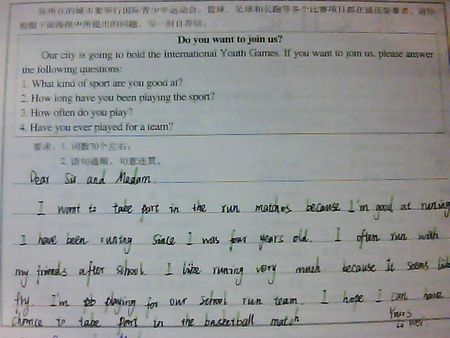 你所在的城市要举行国际青少年运动会，篮球、足球和长跑等各个比赛项目都在诚征参赛者，请你
根据下面海报中所提出的问题，写一封自荐信。
Do you want to join us?
Our city is going to hold the International Youth Games. If you want to join us, please answer
the following questions:
1. What kind of sport are you good at?
2. How long have you been playing the sport?
3. How often do you play?
4. Have you ever played for a team?
要求：1. 词数70个左右；
2. 语句通顺，句意连贯。
Dear Sir and Madam
I want to take part in the run matches because I'm good at runing
I have been runing since I was four years old. I often run with
my friends after school. I like runing very much because It seems like
fly. I'm playing for our school run team. I hope I can have
chance to take part in the basketball match
Yours
Li Wei